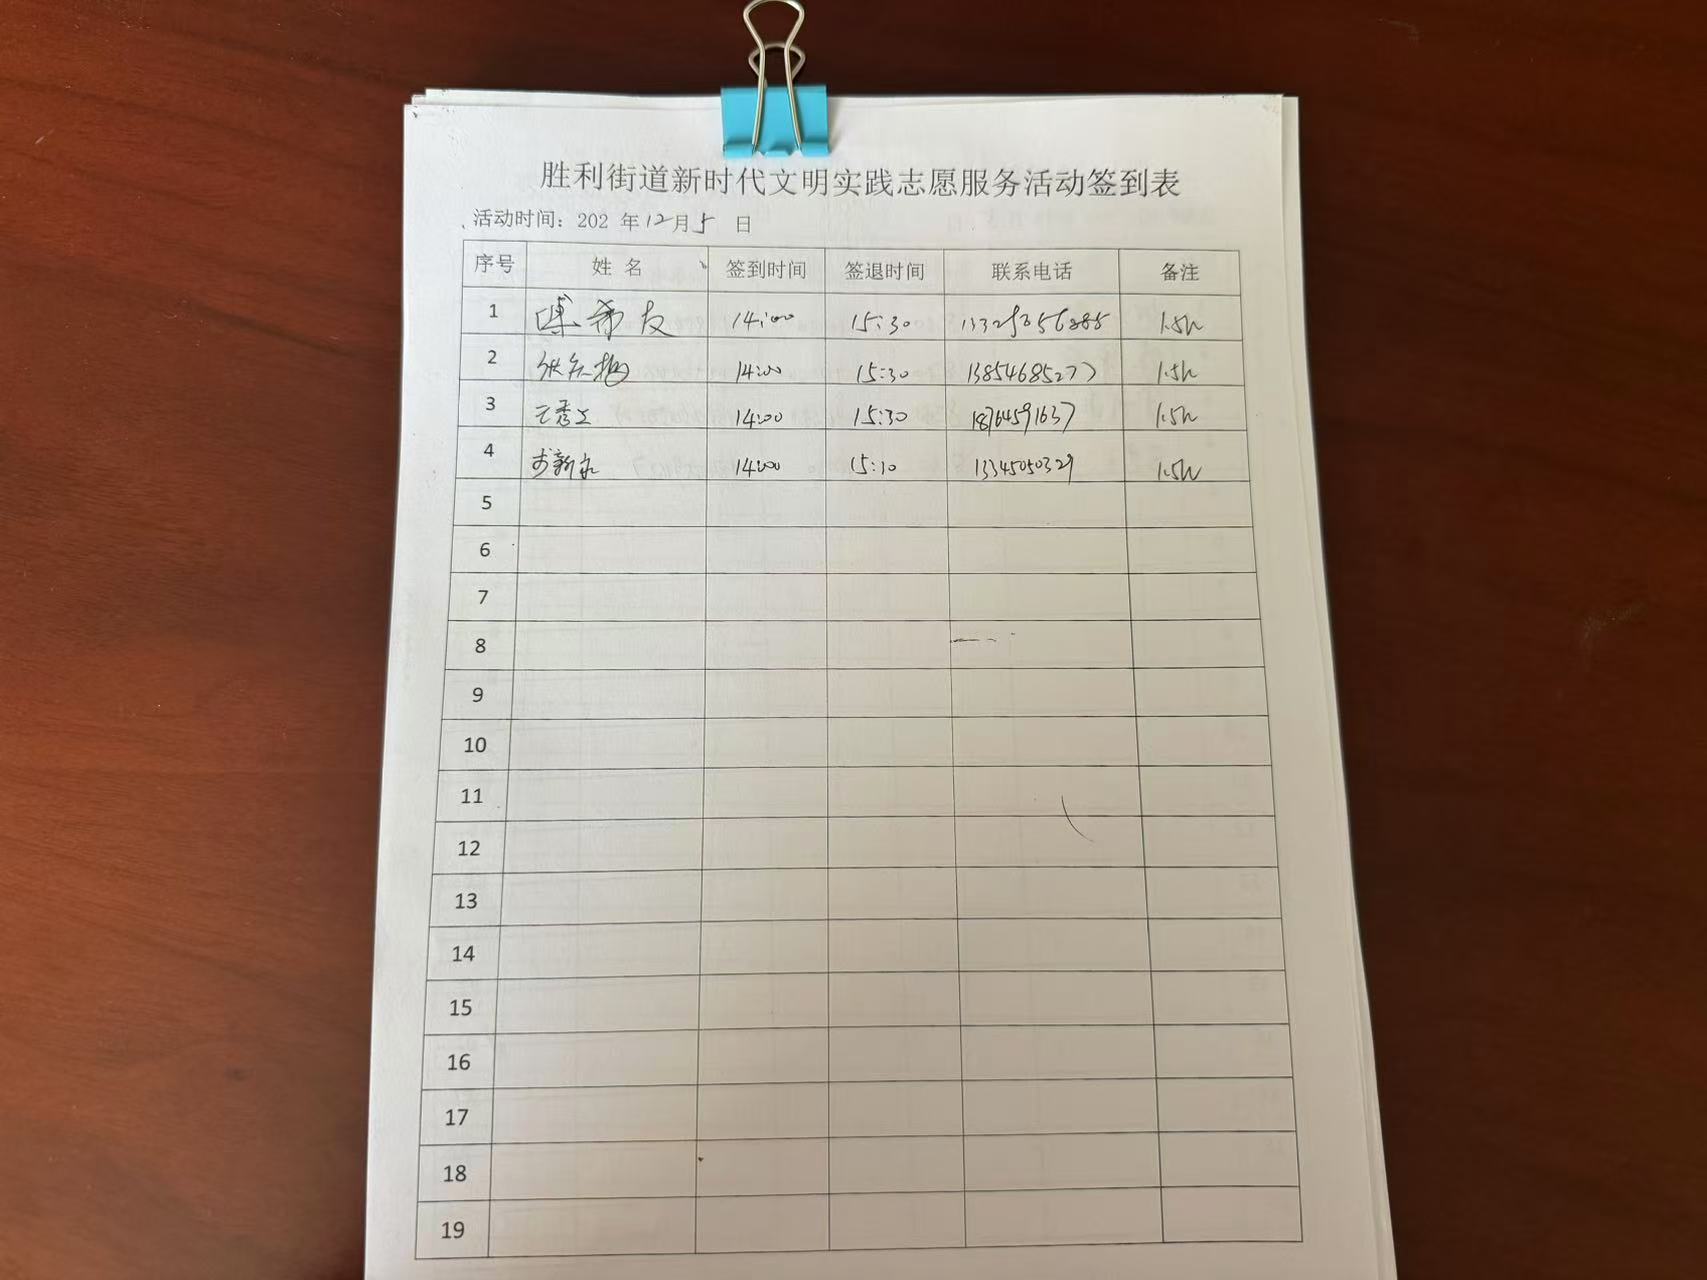 胜利街道新时代文明实践志愿服务活动签到表
活动时间：202 年12月5 日
序号 姓 名 签到时间 签退时间 联系电话 备注
1 14:00 15:30 1.5h
2 14:00 15:30 13854685277 1.5h
3 14:00 15:30 18764591637 1.5h
4 14:00 15:10 13345050329 1.5h
5
6
7
8
9
10
11
12
13
14
15
16
17
18
19